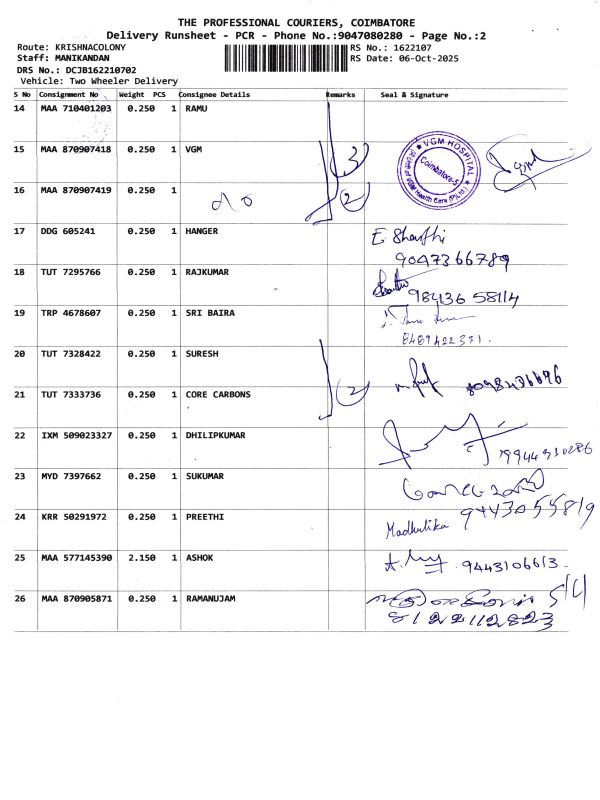 THE PROFESSIONAL COURIERS, COIMBATORE
Delivery Runsheet - PCR - Phone No.:9047080280 - Page No.:2
Route: KRISHNACOLONY RS No.: 1622107
Staff: MANIKANDAN RS Date: 06-Oct-2025
DRS No.: DCJB162210702
Vehicle: Two Wheeler Delivery
S No Consignment No Weight PCS Consignee Details Remarks Seal & Signature
14 MAA 710401203 0.250 1 RAMU
15 MAA 870907418 0.250 1 VGM 3 VGM HOSPITAL Coimbatore-5
16 MAA 870907419 0.250 1 2
17 DDG 605241 0.250 1 HANGER E Sharthi
9047366789
18 TUT 7295766 0.250 1 RAJKUMAR 98436 58114
19 TRP 4678607 0.250 1 SRI BAIRA
8489422331.
20 TUT 7328422 0.250 1 SURESH
21 TUT 7333736 0.250 1 CORE CARBONS 2
22 IXM 509023327 0.250 1 DHILIPKUMAR 9944930286
23 MYD 7397662 0.250 1 SUKUMAR
9443055819
24 KRR 50291972 0.250 1 PREETHI Madhulika
25 MAA 577145390 2.150 1 ASHOK 9443106613.
26 MAA 870905871 0.250 1 RAMANUJAM
8122112823